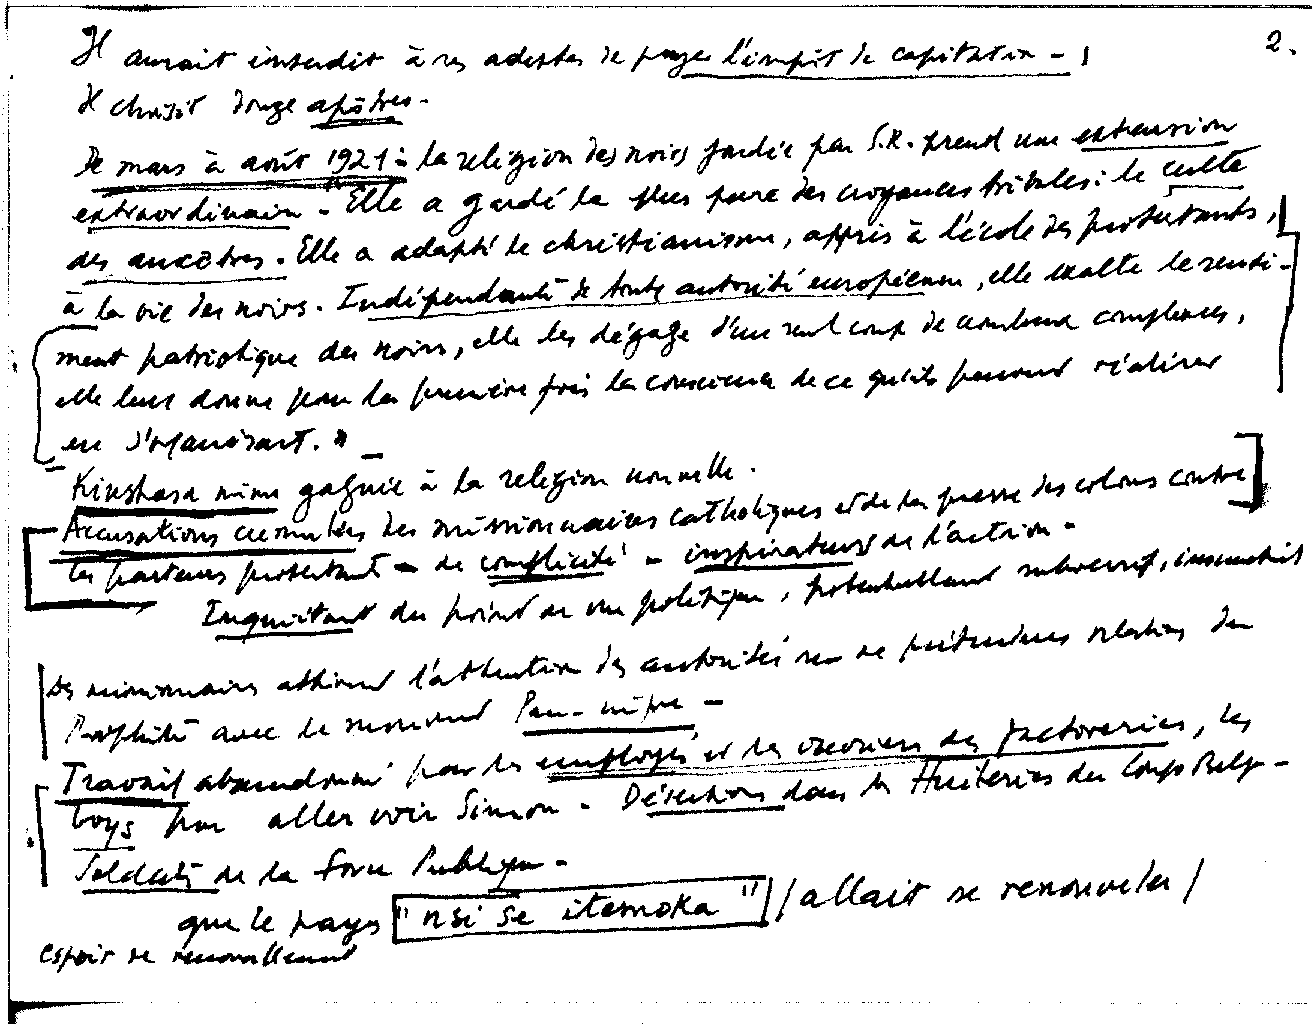 2.
Il aurait interdit à ses adeptes de payer l'impôt de capitation -
Il choisit douze apôtres.
De mars à août 1921 : la religion des noirs fondée par S.K. prend une extension
extraordinaire. "Elle a gardé la plus pure des croyances tribales : le culte
des ancêtres. Elle a adapté le christianisme, appris à l'école des protestants,
à la vie des noirs. Indépendante de toute autorité européenne, elle exalte le senti-
ment patriotique des noirs, elle les dégage d'un seul coup de nombreux complexes,
elle leur donne pour la première fois la conscience de ce qu'ils peuvent réaliser
en s'organisant."
Kinshasa même gagnée à la religion nouvelle.
Accusations cumulées des missionnaires catholiques et de la presse des colons contre
les pasteurs protestants - de complicité - inspirateurs de l'action -
Inquiétant du point de vue politique, potentiellement subversif,
Des missionnaires attirent l'attention des autorités sur de prétendues relations du
Prophète avec le mouvement Pan-nègre -
Travail abandonné par les employés et les ouvriers des factoreries, les
boys pour aller voir Simon - Désertions dans les Huileries du Congo Belge -
Soldats de la Force Publique -
que le pays "nsi se itemoka" / allait se renouveler /
espoir de renouvellement